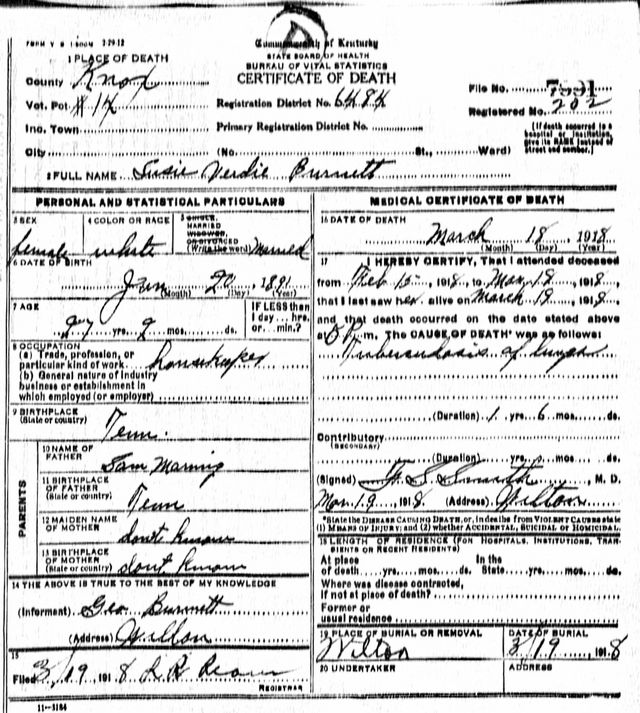 FORM V S 1 500M 3-29-12
Commonwealth of Kentucky
STATE BOARD OF HEALTH
BUREAU OF VITAL STATISTICS
CERTIFICATE OF DEATH
1 PLACE OF DEATH
County Knox
Vot. Pct # 14
Inc. Town
City
Registration District No. 6484
Primary Registration District No.
(No. St., Ward)
File No. 7591
Registered No. 202
(If death occurred in a
hospital or institution,
give its NAME instead of
street and number.)
2 FULL NAME Susie Verdie Burnett
PERSONAL AND STATISTICAL PARTICULARS
3 SEX
female
4 COLOR OR RACE
white
5 SINGLE,
MARRIED
WIDOWED,
OR DIVORCED
(Write the word) Married
6 DATE OF BIRTH
Jun 20, 1891
(Month) (Day) (Year)
7 AGE
27 yrs. 9 mos. ds.
IF LESS than
1 day... hrs.
or min.?
8 OCCUPATION
(a) Trade, profession, or
particular kind of work housekeeper
(b) General nature of industry
business or establishment in
which employed (or employer)
9 BIRTHPLACE
(State or country)
Tenn.
PARENTS
10 NAME OF
FATHER
Sam
11 BIRTHPLACE
OF FATHER
(State or country)
Tenn
12 MAIDEN NAME
OF MOTHER
dont know
13 BIRTHPLACE
OF MOTHER
(State or country) dont know
14 THE ABOVE IS TRUE TO THE BEST OF MY KNOWLEDGE
(Informant) Geo Burnett
(Address) Wilton
15
Filed 3/19 1918
REGISTRAR
11-3184
MEDICAL CERTIFICATE OF DEATH
16 DATE OF DEATH
March 18, 1918
(Month) (Day) (Year)
17 I HEREBY CERTIFY, That I attended deceased
from Feb 15, 1918, to Mar. 18, 1918,
that I last saw her alive on March 18, 1918,
and that death occurred on the date stated above
at 5 P. m. The CAUSE OF DEATH* was as follows:
Tuberculosis of lungs
(Duration) 1 yrs. 6 mos. ds.
Contributory
(SECONDARY)
(Duration) yrs. mos. ds.
(Signed) Smith, M. D.
Mar. 19, 1918 (Address) Wilton
*State the DISEASE CAUSING DEATH, or, in deaths from VIOLENT CAUSES state
(1) MEANS OF INJURY; and (2) whether ACCIDENTAL, SUICIDAL or HOMICIDAL.
18 LENGTH OF RESIDENCE (FOR HOSPITALS, INSTITUTIONS, TRAN-
SIENTS OR RECENT RESIDENTS)
At place In the
of death yrs. mos. ds. State yrs. mos. ds.
Where was disease contracted,
if not at place of death?
Former or
usual residence
19 PLACE OF BURIAL OR REMOVAL
Wilton
DATE OF BURIAL
3/19, 1918
20 UNDERTAKER
ADDRESS